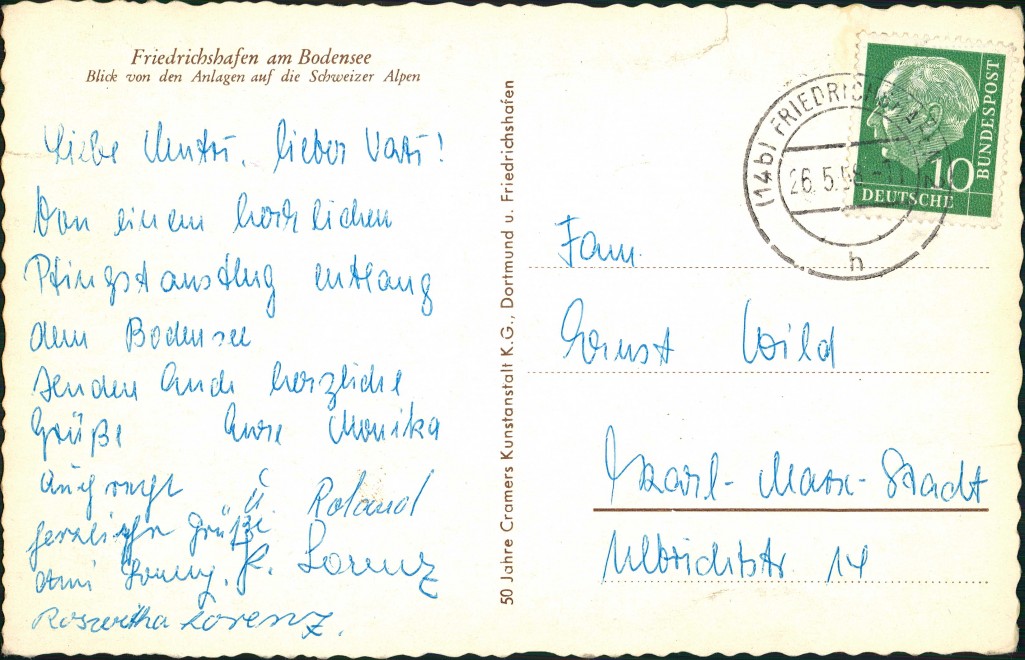 Friedrichshafen am Bodensee
Blick von den Anlagen auf die Schweizer Alpen
Liebe Mutti, lieber Vati!
Von einem herrlichen
Pfingstausflug entlang
dem Bodensee
senden Euch herzliche
Grüße Eure Monika
u. Roland
Auch recht
herzliche Grüße
K. Lorenz
Roswitha Lorenz.
50 Jahre Cramers Kunstanstalt K.G., Dortmund u. Friedrichshafen
(14b) FRIEDRICHSHAFEN
26.5.58.-11
h
10
DEUTSCHE
BUNDESPOST
Fam.
Ernst Wild
Karl-Marx-Stadt
Ulbrichtstr 14